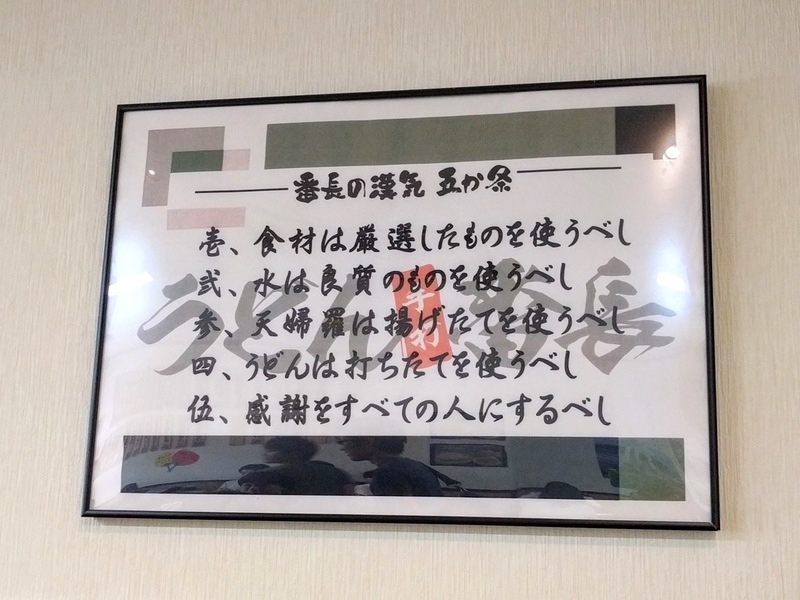 番長の漢気 五か条
壱、食材は厳選したものを使うべし
弐、水は良質のものを使うべし
参、天婦羅は揚げたてを使うべし
四、うどんは打ちたてを使うべし
伍、感謝をすべての人にするべし
うどん 手打 番長